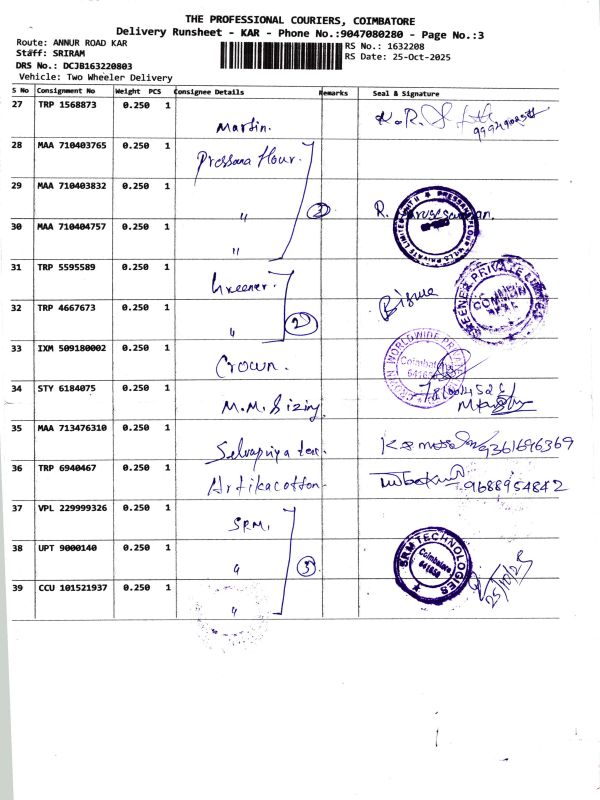 THE PROFESSIONAL COURIERS, COIMBATORE
Delivery Runsheet - KAR - Phone No.:9047080280 - Page No.:3
Route: ANNUR ROAD KAR
RS No.: 1632208
Staff: SRIRAM
RS Date: 25-Oct-2025
DRS No.: DCJB163220803
Vehicle: Two Wheeler Delivery
S No Consignment No Weight PCS Consignee Details Remarks Seal & Signature
27 TRP 1568873 0.250 1 Martin.
28 MAA 710403765 0.250 1 Pressana flour.
29 MAA 710403832 0.250 1 " 2
30 MAA 710404757 0.250 1 "
31 TRP 5595589 0.250 1 Greener.
32 TRP 4667673 0.250 1 " 2
33 IXM 509180002 0.250 1 Crown.
34 STY 6184075 0.250 1 M.M. Sizing
35 MAA 713476310 0.250 1 Selvapriya tex. 9361696369
36 TRP 6940467 0.250 1 Artikacotton 9688954842
37 VPL 229999326 0.250 1 SRM,
38 UPT 9000140 0.250 1 " 3
SRM TECHNOLOGIES
Coimbatore
641650
25/10/25
39 CCU 101521937 0.250 1 "